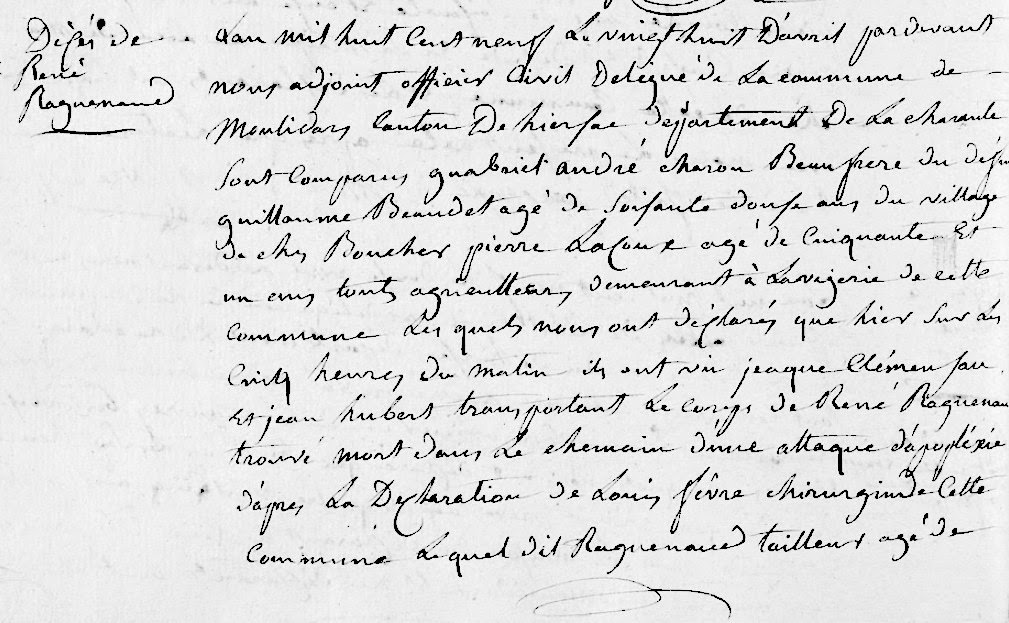 Décés de
René
Raguenaud
L'an mil huit Cent neuf Le vingt huit D'avril pardevant
nous adjoint officier Civil Deleigué de La commune de
Moulidars Canton De hiersac département De La charante
Sont Comparus guabriel andré charon Beaufrere du défun
guillaume Beaudet agé de Soisante donse ans du village
de ches Boucher pierre Lacoux agé de Cinquante Et
un ans touts agriculteurs demeurant à Lavigerie de cette
Commune Les quels nous ont déclarés que hier Sur les
Cinq heures du matin ils ont vu jeaque Clémensau
Et jean hubert transportant Le corps de René Raguenau
trouvé mort dans Le chemain d'une attaque d'apopléxie
d'apres La Declaration de Louis fèvre chirurgin de Cette
Commune Lequel dit Raguenaud tailleur agé de